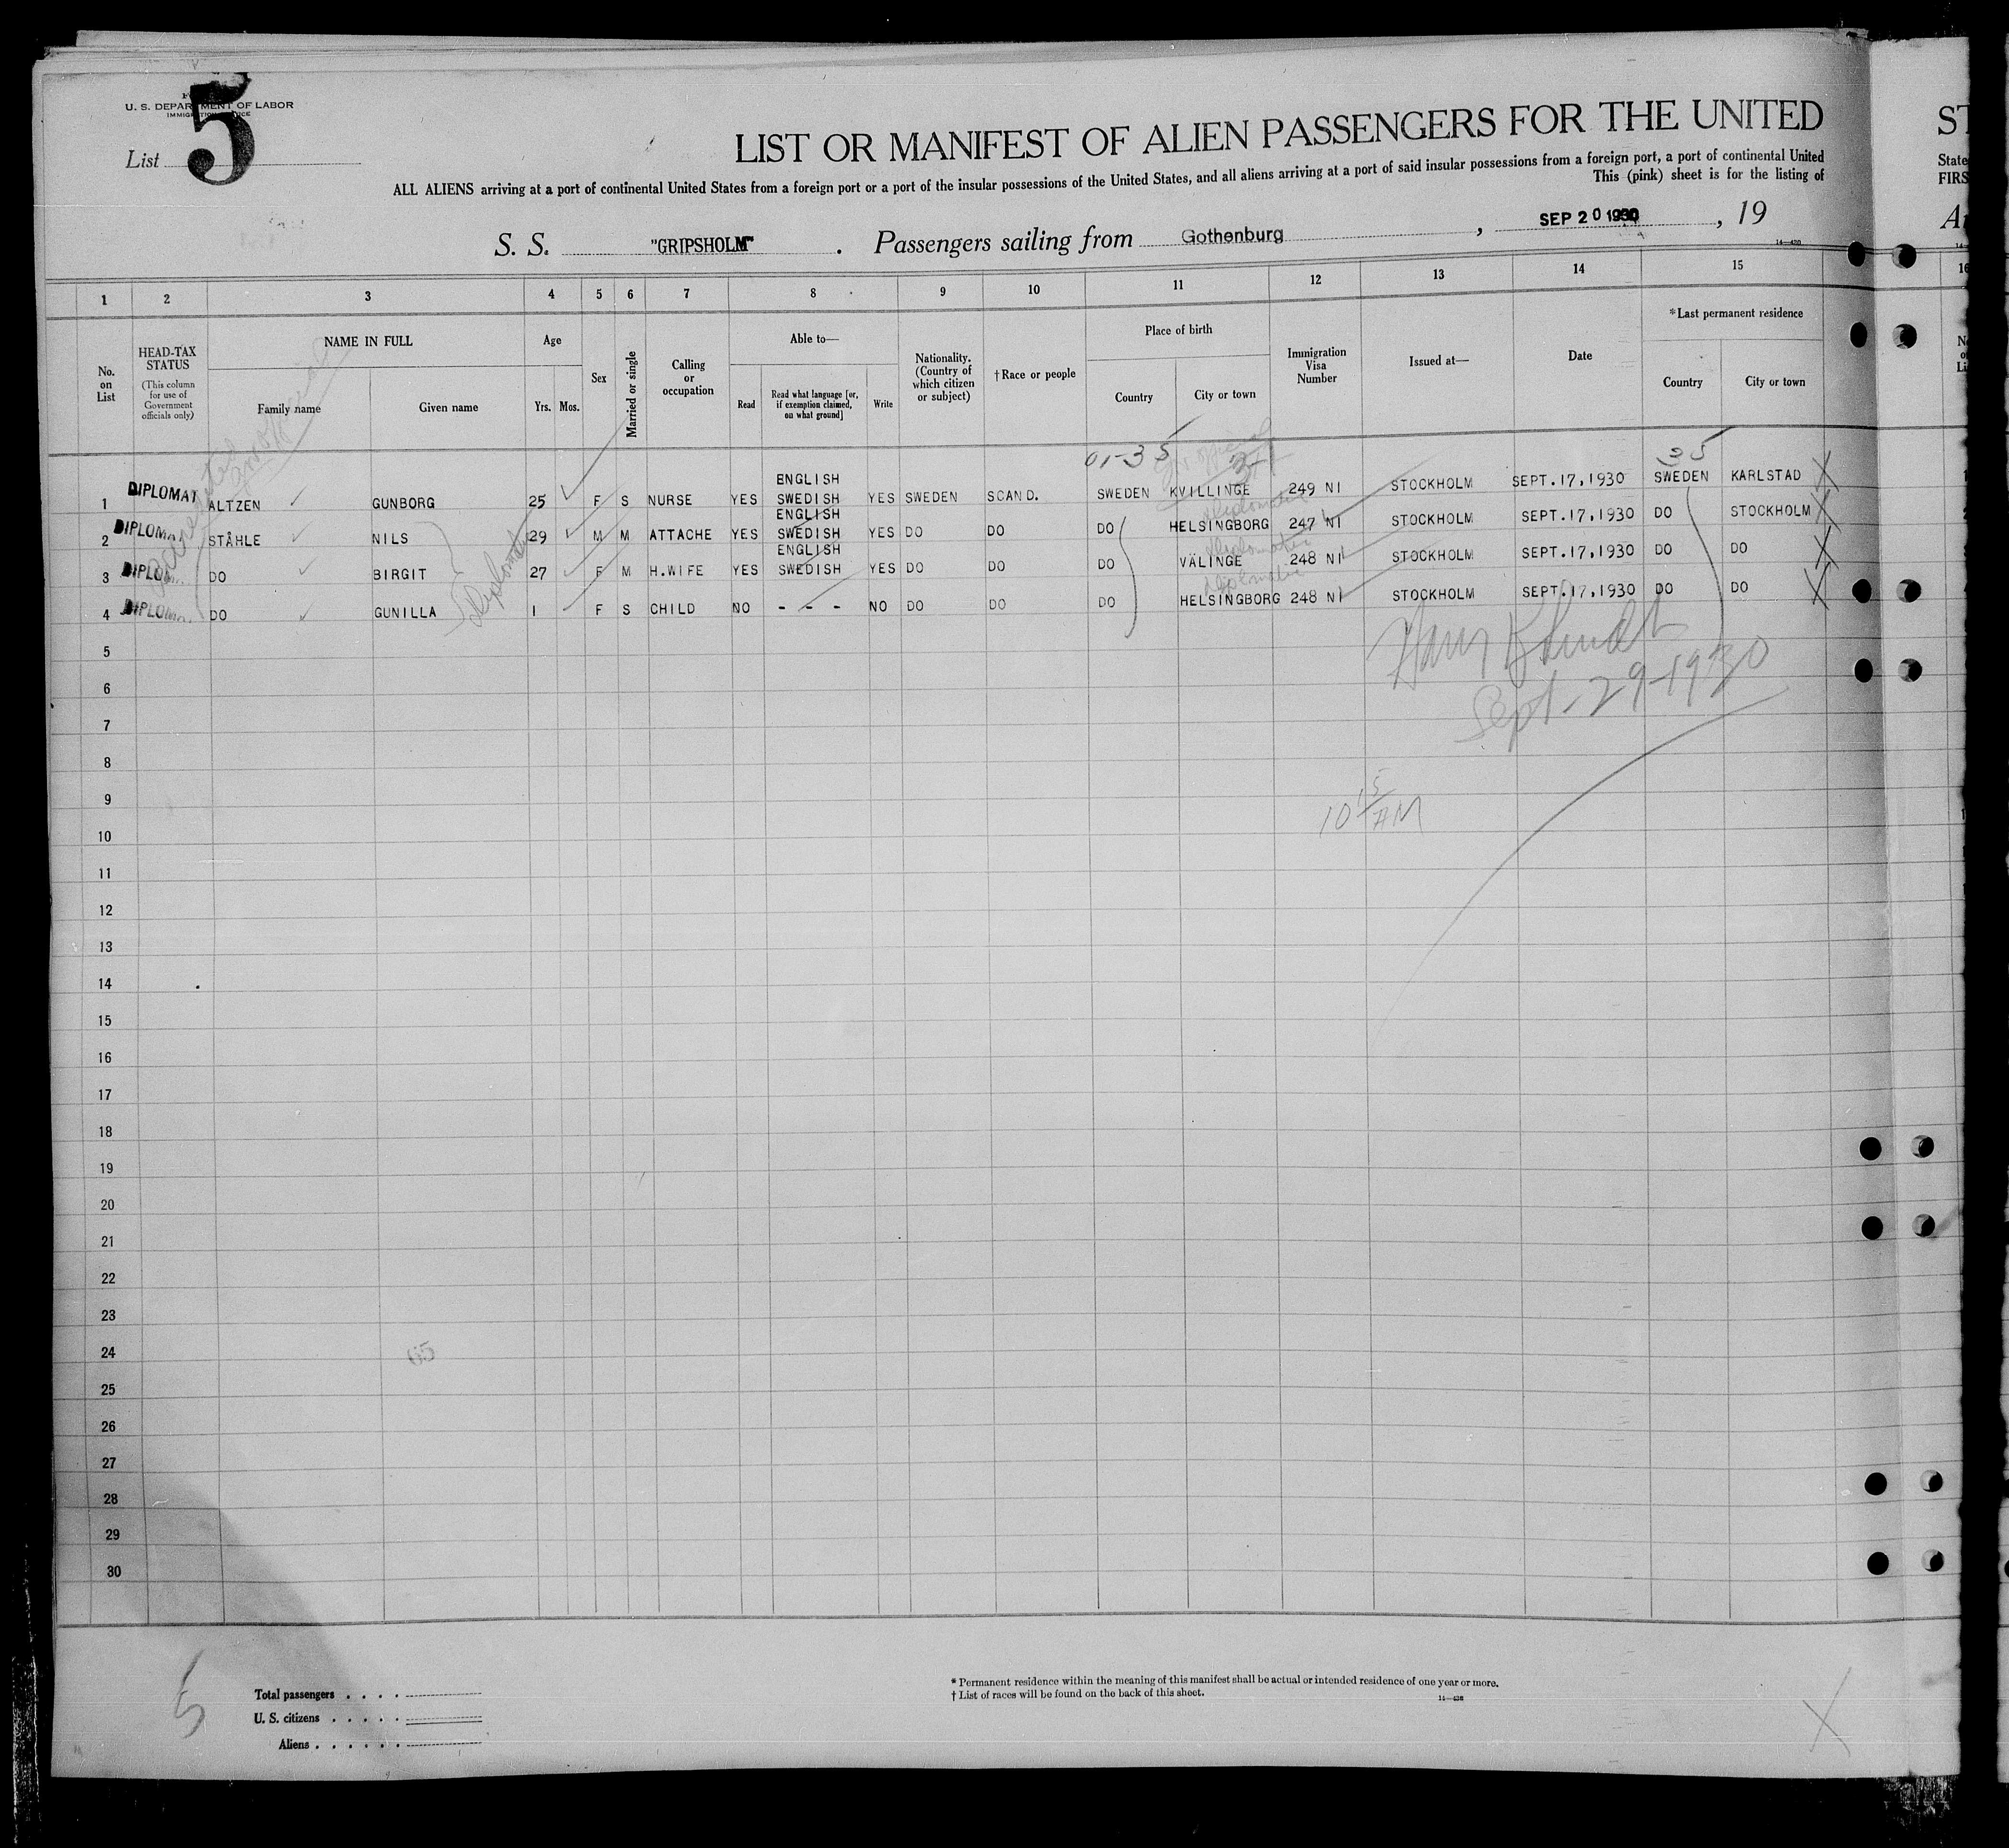 5
U. S. DEPARTMENT OF LABOR
IMMIGRATION SERVICE
List
LIST OR MANIFEST OF ALIEN PASSENGERS FOR THE UNITED
ST
ALL ALIENS arriving at a port of continental United States from a foreign port or a port of the insular possessions of the United States, and all aliens arriving at a port of said insular possessions from a foreign port, a port of continental United
State
This (pink) sheet is for the listing of
FIRS
S. S. "GRIPSHOLM" . Passengers sailing from Gothenburg , SEP 20 1930 , 19
14—430
1 2 3 4 5 6 7 8 9 10 11 12 13 14 15 16
No. on List
HEAD-TAX STATUS
(This column for use of Government officials only)
NAME IN FULL
Family name
Given name
Age
Yrs. Mos.
Sex
Married or single
Calling or occupation
Able to—
Read
Read what language [or, if exemption claimed, on what ground]
Write
Nationality. (Country of which citizen or subject)
†Race or people
Place of birth
Country
City or town
Immigration Visa Number
Issued at—
Date
*Last permanent residence
Country
City or town
01-35
35
1 DIPLOMAT ALTZEN GUNBORG 25 F S NURSE YES ENGLISH SWEDISH YES SWEDEN SCAND. SWEDEN KVILLINGE 249 NI STOCKHOLM SEPT.17,1930 SWEDEN KARLSTAD
2 DIPLOMA STÅHLE NILS 29 M M ATTACHE YES ENGLISH SWEDISH YES DO DO DO HELSINGBORG 247 NI STOCKHOLM SEPT.17,1930 DO STOCKHOLM
3 DIPLOM DO BIRGIT 27 F M H.WIFE YES ENGLISH SWEDISH YES DO DO DO VÄLINGE 248 NI STOCKHOLM SEPT.17,1930 DO DO
4 DIPLOMA DO GUNILLA 1 F S CHILD NO - - - NO DO DO DO HELSINGBORG 248 NI STOCKHOLM SEPT.17,1930 DO DO
Diplomatic
Diplomatic
Diplomatic
Diplomatic
5
6
Sept-29-1930
7
8
9
10 15 AM
10
11
12
13
14
15
16
17
18
19
20
21
22
23
24
65
25
26
27
28
29
30
5
Total passengers . . . .
U. S. citizens . . . . .
Aliens . . . . . .
* Permanent residence within the meaning of this manifest shall be actual or intended residence of one year or more.
† List of races will be found on the back of this sheet.
14—430
X